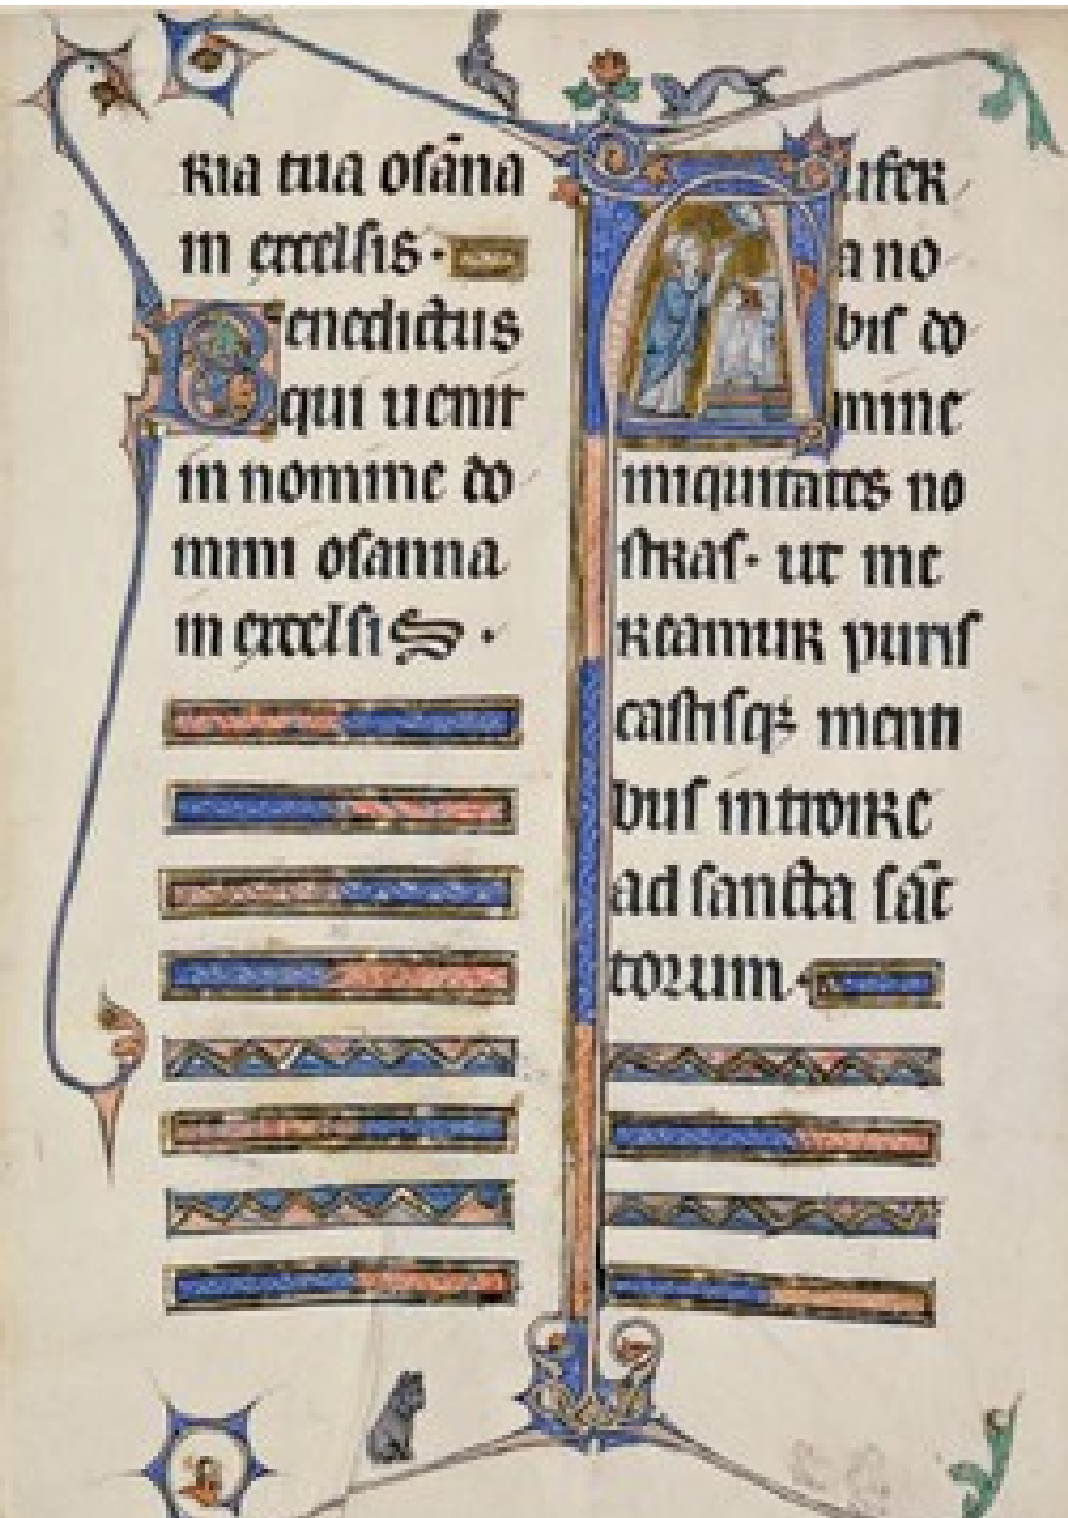 ria tua osāna
in excelsis·
Benedictus
qui uenit
in nomine do
mini osanna
in excelsis·
Aufer
a no
bis do
mine
iniquitates no
stras· ut me
reamur puris
castisq; menti
bus introire
ad sancta sāc
torum·